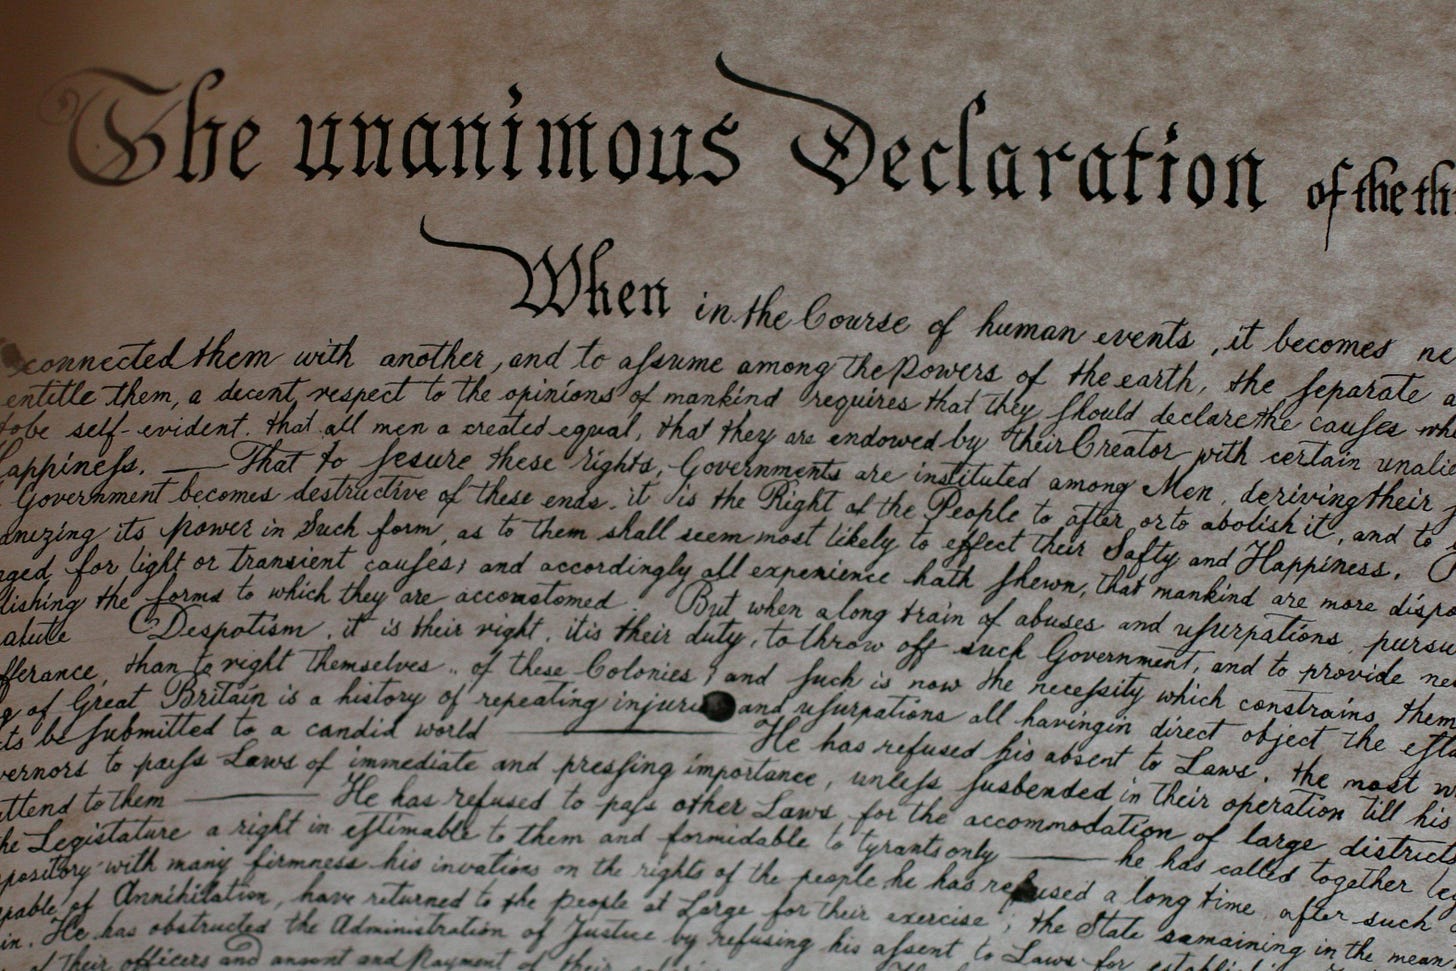 The unanimous Declaration of the th
When in the Course of human events, it becomes ne
connected them with another, and to aſsume among the Powers of the earth, the ſeparate a
entitle them, a decent respect to the opinions of mankind requires that they ſhould declare the cauſes wh
to be self-evident. that all men a created equal, that they are endowed by their Creator with certain unalie
Happineſs. — That to ſesure these rights, Governments are instituted among Men, deriving their
Government becomes destructive of these ends. it is the Right of the People to after or to abolish it, and to
anizing its power in Such form, as to them shall seem most likely to effect their Safty and Happiness.
nged for light or transient cauſes; and accordingly all experience hath ſhewn, that mankind are more dispo
lishing the forms to which they are accoustomed. But when a long train of abuses and uſurpations, pursu
alute Despotism, it is their right, it is their duty, to throw off such Government, and to provide ne
fferance, than to right themselves.. of these Colonies; and ſuch is now the neceſsity which constrains them
g of Great Britain is a history of repeating injuri and uſurpations all having in direct object the eſta
ts be ſubmitted to a candid world — He has refused his absent to Laws, the most w
vernors to paſs Laws of immediate and preſsing importance, unleſs ſusbended in their operation till his
attend to them — He has refused to paſs other Laws for the accommodation of large district
he Legistature a right in eſtimable to them and formidable to tyrants only — he has called together leg
pository with many firmness his invations on the rights of the people he has refused a long time, after such
apable of Annihilation, have returned to the People at Large for their exercise; the State samaining in the mean
in. He has obstructed the Administration of Justice by refusing his aſsent to Laws for establi
of their officers and amont and Payment of their